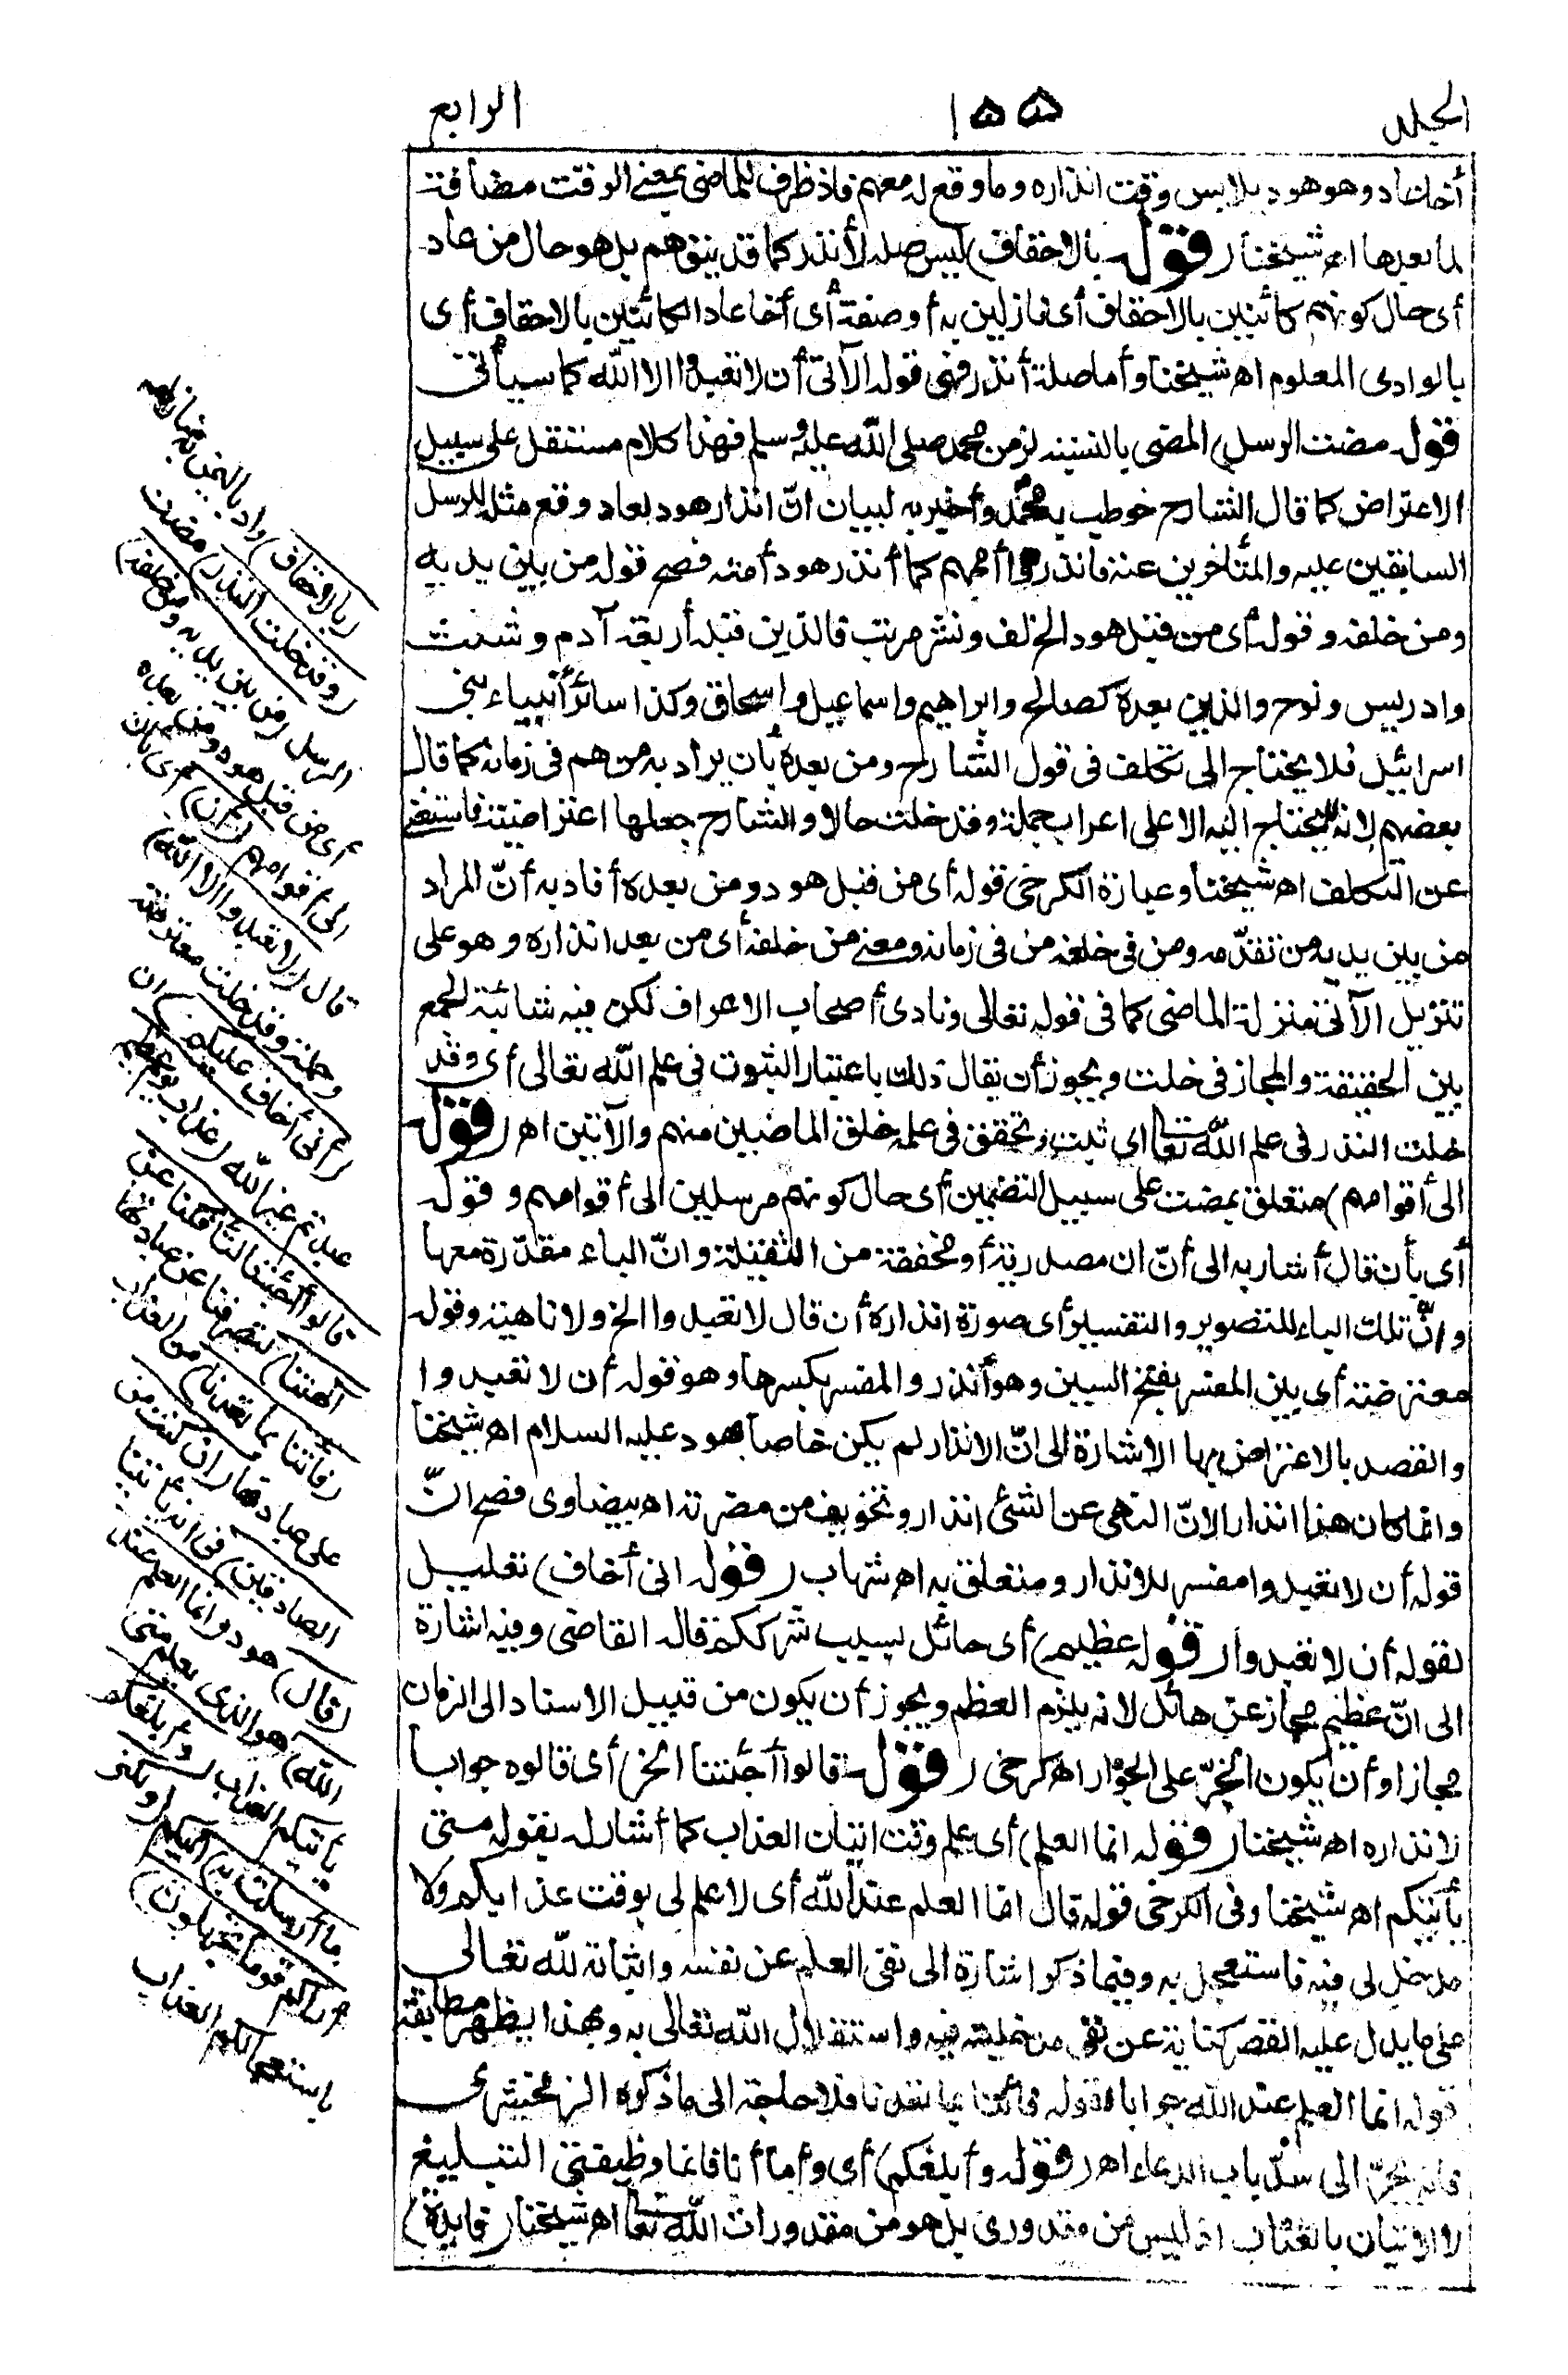 الجلد ١٥٥ الرابع
أخا عاد وهو هود بلابس وقت انذاره وما وقع له معهم فاذ ظرف للماضى بمعنى الوقت مضافة
لما بعدها اھ شيخنا (قوله بالاحقاف) ليس صلة لأنذر كما قد يتوهم بل هو حال من عاد
أى حال كونهم كائنين بالاحقاف أى نازلين به أو صفة أى أخا عاد الكائنين بالاحقاف أى
بالوادى المعلوم اھ شيخنا وأما صلة أنذر فهى قوله الآتى أن لا تعبدوا الا الله كما سيأتى
قوله مضت الرسل) المضى بالنسبة لزمن محمد صلى الله عليه وسلم فهذا كلام مستقل على سبيل
الاعتراض كما قال الشارح خوطب به محمد وأخبر به لبيان انّ انذار هود لعاد وقع مثله للرسل
السابقين عليه والمتأخرين عنه فانذروا أممهم كما أنذر هود أمته فصح قوله من بين يديه
ومن خلفه وقوله أى من قبل هود الخ لف ونشر مرتب فالذين قبله أربعة آدم وشيث
وادريس ونوح والذين بعده كصالح وابراهيم واسماعيل واسحاق وكذا سائر أنبياء بنى
اسرائيل فلا يحتاج الى تكلف فى قول الشارح ومن بعده بأن يراد به من هم فى زمانه كما قال
بعضهم لانه لا يحتاج اليه الا على اعراب جملة وقد خلت حالا والشارح جعلها اعتراضية فاستغنى
عن التكلف اھ شيخنا وعبارة الكرخى قوله أى من قبل هود ومن بعده أفاد به أنّ المراد
من بين يديه من تقدّمه ومن فى خلفه من فى زمانه ومعنى من خلفه أى من بعد انذاره وهو على
تنزيل الآتى منزلة الماضى كما فى قوله تعالى ونادى أصحاب الاعراف لكن فيه شائبة الجمع
بين الحقيقة والمجاز فى خلت ويجوز أن يقال ذلك باعتبار الثبوت فى علم الله تعالى أى وقد
خلت النذر فى علم الله تعالى اى ثبت وتحقق فى علمه خلق الماضين منهم والآتين اھ (قوله
الى أقوامهم) متعلق بمضت على سبيل التضمين أى حال كونهم مرسلين الى أقوامهم وقوله
أى بأن قال أشار به الى أنّ ان مصدرية أو مخففة من الثقيلة وانّ الباء مقدّرة معها
وانّ تلك الباء للتصوير والتفسير أى صورة انذاره أن قال لا تعبدوا الخ ولا ناهية وقوله
معترضة أى بين المفسر بفتح السين وهو أنذر والمفسر بكسرها وهو قوله أن لا تعبدوا
والقصد بالاعتراض بها الاشارة الى انّ الانذار لم يكن خاصا بهود عليه السلام اھ شيخنا
وانما كان هذا انذارا لانّ النهى عن الشئ انذار وتخويف من مضرته اھ بيضاوى فصح انّ
قوله أن لا تعبدوا مفسر للانذار ومتعلق به اھ شهاب (قوله انى أخاف) تعليل
لقوله أن لا تعبدوا (قوله عظيم) أى هائل بسبب شرككم قاله القاضى وفيه اشارة
الى انّ عظيم مجاز عن هائل لانه يلزم العظم ويجوز أن يكون من قبيل الاسناد الى الزمان
مجازا وأن يكون الجرّ على الجوار اھ كرخى (قوله قالوا أجئتنا الخ) أى قالوه جوابا
لانذاره اھ شيخنا (قوله انما العلم) أى علم وقت اتيان العذاب كما أشار له بقوله متى
يأتيكم اھ شيخنا وفى الكرخى قوله قال انما العلم عند الله أى لا علم لى بوقت عذابكم ولا
مدخل لى فيه فاستعجل به وفيما ذكر اشارة الى نفى العلم عن نفسه واثباته لله تعالى
على ما يدل عليه القصر كناية عن نفى مدخليته فيه واستقلال الله تعالى به وبهذا يظهر مطابقة
قوله انما العلم عند الله جوابا لقوله فأتنا بما تعدنا فلا حاجة الى ما ذكره الزمخشرى
فانه يجرّ الى سدّ باب الدعاء اھ (قوله وأبلغكم) أى وأما أنا فانما وظيفتى التبليغ
لا الاتيان بالعذاب اذ ليس من مقدورى بل هو من مقدورات الله تعالى اھ شيخنا (فايدة)
(بالاحقاف) واد باليمن به منازلهم
(وقد خلت النذر) مضت
الرسل (من بين يديه ومن خلفه)
أى من قبل هود ومن بعده
الى أقوامهم (أن) أى بأن
قال (لا تعبدوا الا الله)
وجملة وقد خلت معترضة
(انى أخاف عليكم) ان
عبدتم غير الله (عذاب يوم عظيم
قالوا أجئتنا لتأفكنا عن
آلهتنا) لتصرفنا عن عبادتها
(فأتنا بما تعدنا) من العذاب
على عبادتها (ان كنت من
الصادقين) فى انه يأتينا
(قال) هود (انما العلم عند
الله) هو الذى يعلم متى
يأتيكم العذاب (وأبلغكم
ما أرسلت به) اليكم (ولكنى
أراكم قوما تجهلون)
باستعجالكم العذاب